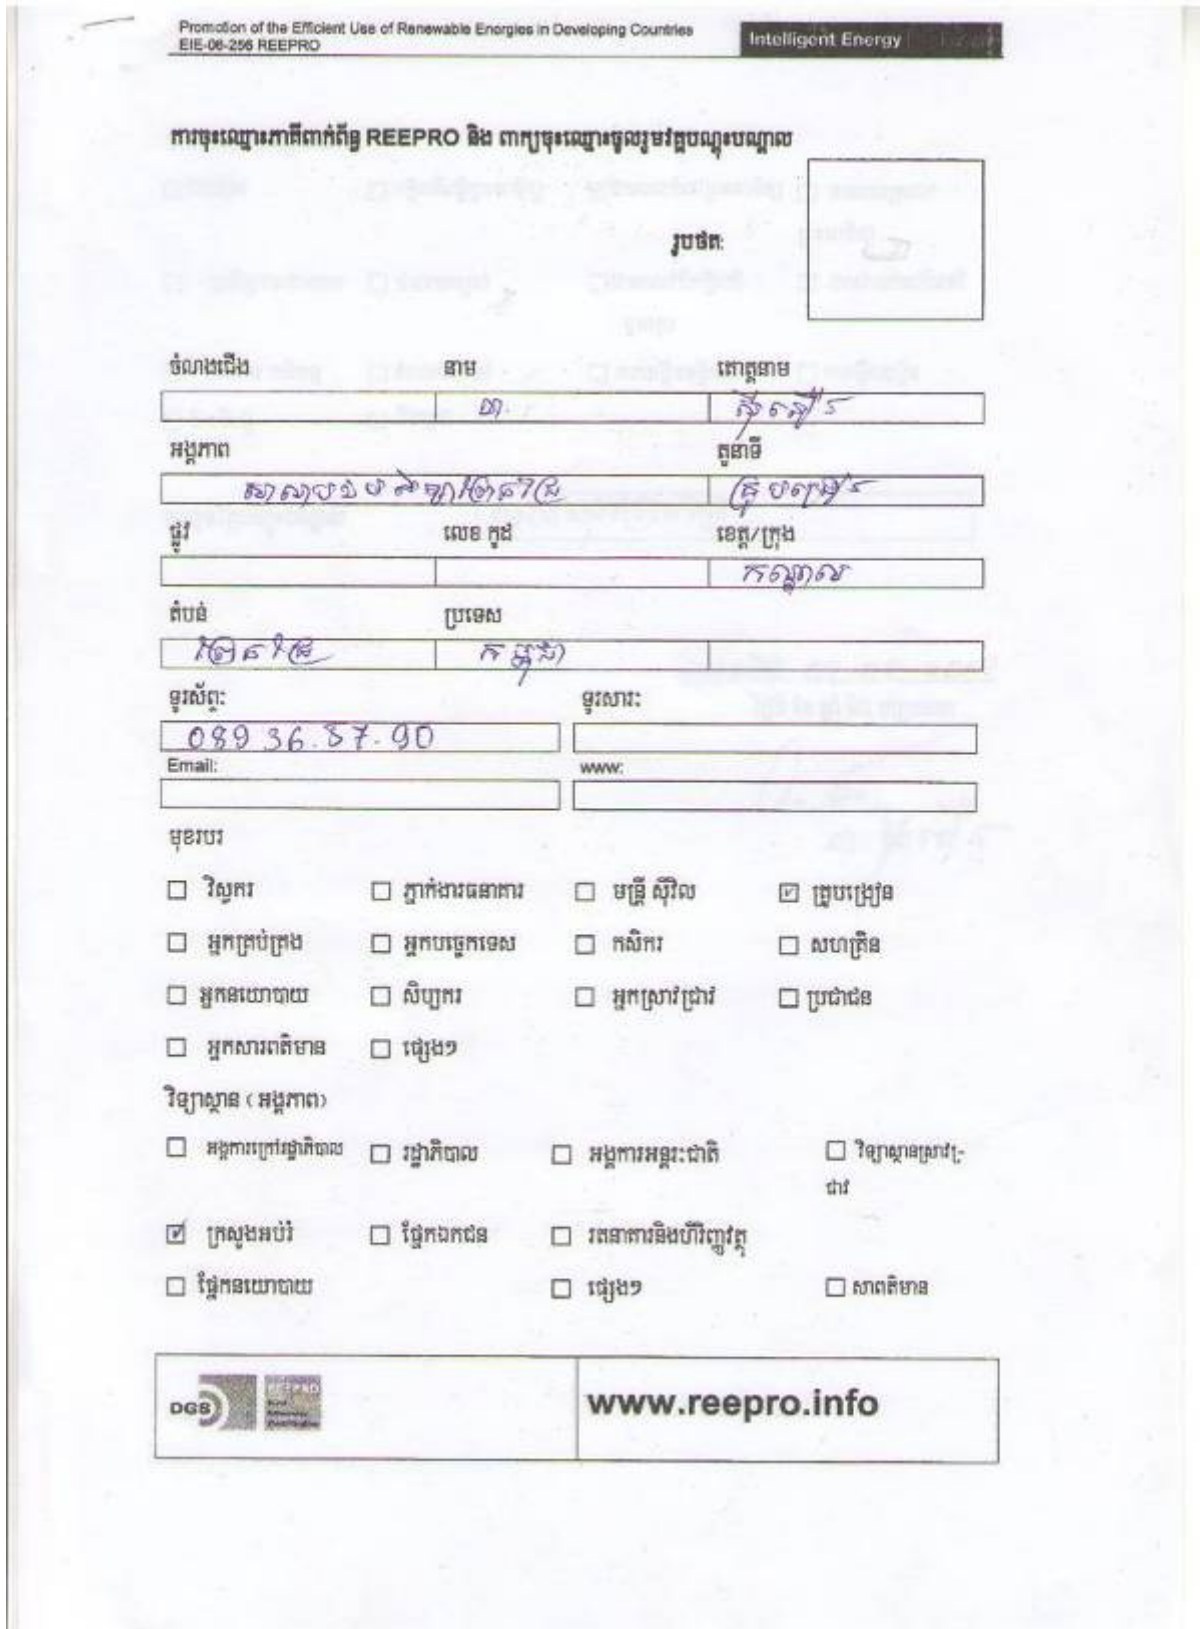 Promotion of the Efficient Use of Renewable Energies in Developing Countries
EIE-06-256 REEPRO
Intelligent Energy
ការចុះឈ្មោះភាគីពាក់ព័ន្ធ REEPRO និង ពាក្យចុះឈ្មោះចូលរួមវគ្គបណ្តុះបណ្តាល
រូបថត:
ចំណងជើង នាម គោត្តនាម
អង្គភាព តួនាទី
គ្រូបង្រៀន
ផ្លូវ លេខ កូដ ខេត្ត/ក្រុង
កណ្តាល
តំបន់ ប្រទេស
កម្ពុជា
ទូរស័ព្ទ: ទូរសារ:
089 36.57.90
Email: www:
មុខរបរ
វិស្វករ ភ្នាក់ងារធនាគារ មន្ត្រី ស៊ីវិល គ្រូបង្រៀន
អ្នកគ្រប់គ្រង អ្នកបច្ចេកទេស កសិករ សហគ្រិន
អ្នកនយោបាយ សិប្បករ អ្នកស្រាវជ្រាវ ប្រជាជន
អ្នកសារពត៌មាន ផ្សេងៗ
វិទ្យាស្ថាន ( អង្គភាព)
អង្គការក្រៅរដ្ឋាភិបាល រដ្ឋាភិបាល អង្គការអន្តរ:ជាតិ វិទ្យាស្ថានស្រាវ្រ-
ជាវ
ក្រសួងអប់រំ ផ្នែកឯកជន រតនាគារនិងហិរិញ្ញវត្ថុ
ផ្នែកនយោបាយ ផ្សេងៗ សាពត៌មាន
DGS REEPRO www.reepro.info